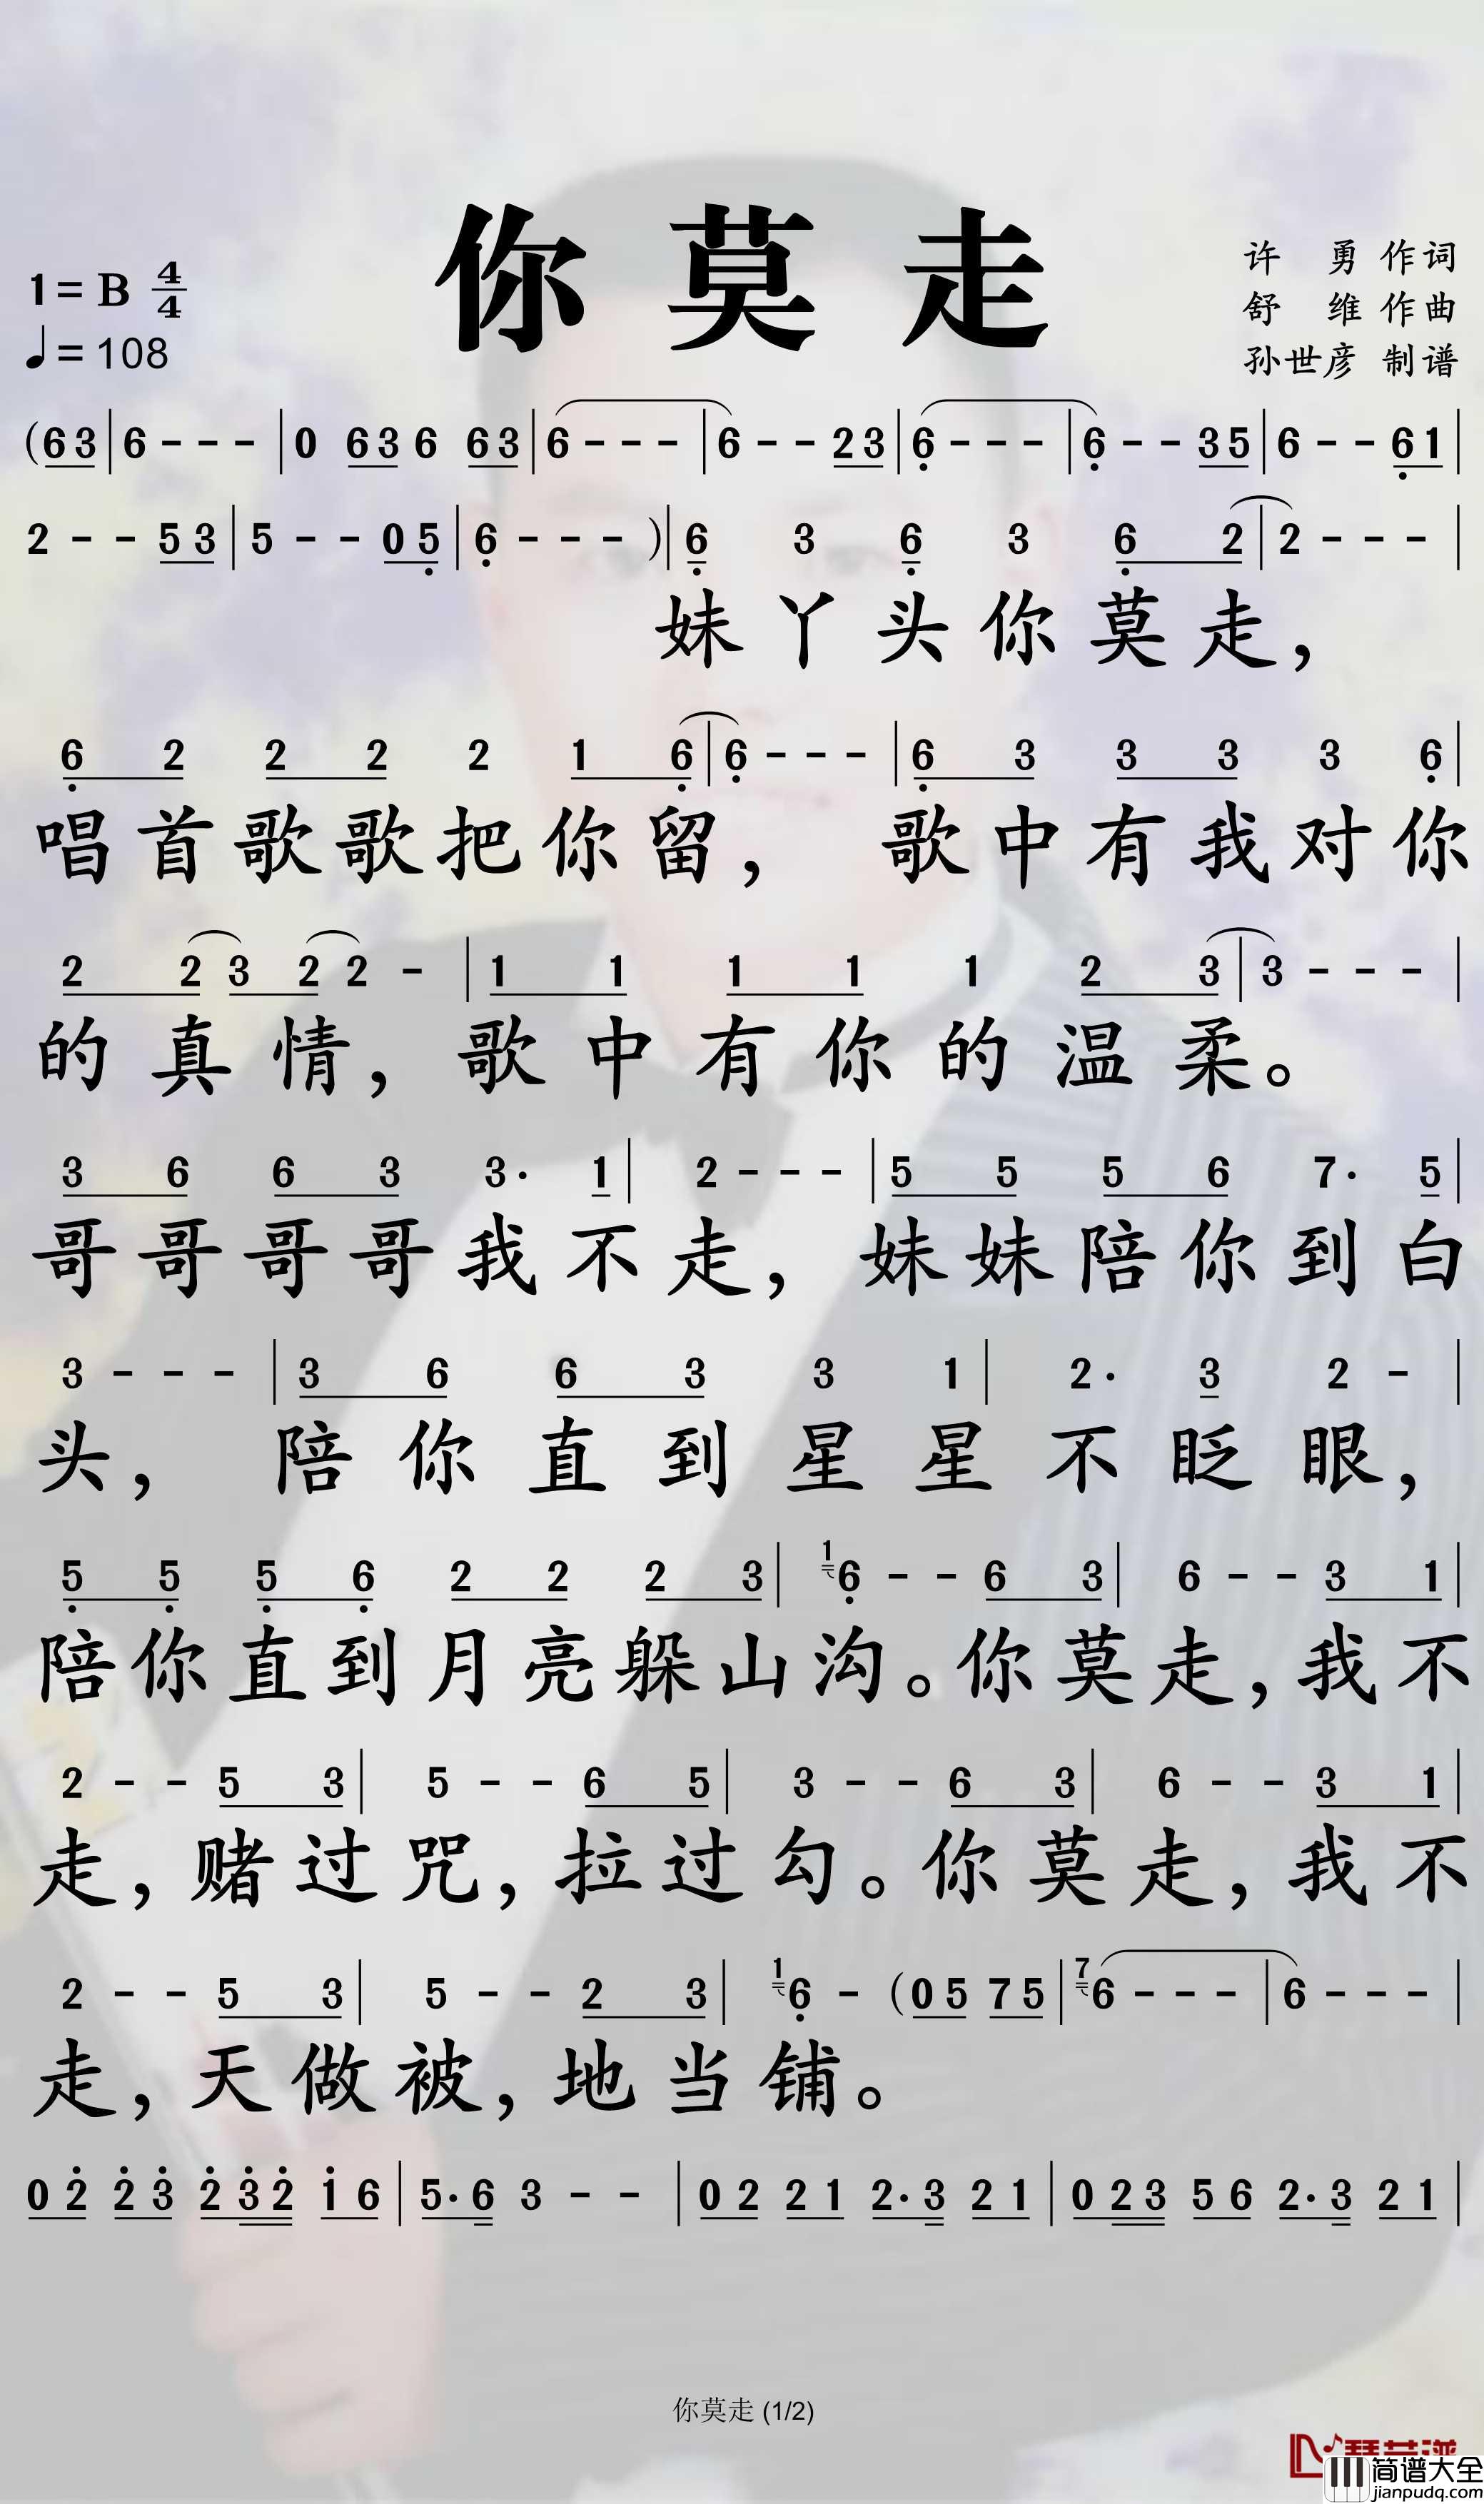 你莫走
1=B 4/4
♩=108
许 勇 作词
舒 维 作曲
孙世彦 制谱
(6 3 | 6 - - - | 0 6 3 6 6 3 | 6 - - - | 6 - - 2 3 | 6̣ - - - | 6̣ - - 3 5 | 6 - - 6̣ 1 |
2 - - 5 3 | 5 - - 0 5̣ | 6̣ - - - ) | 6̣ 3 6̣ 3 6̣ 2 | 2 - - - |
妹丫头你莫走，
6̣ 2 2 2 2 1 6̣ | 6̣ - - - | 6̣ 3 3 3 3 6̣ |
唱首歌歌把你留， 歌中有我对你
2 2 3 2 2 - | 1 1 1 1 1 2 3 | 3 - - - |
的真情，歌中有你的温柔。
3 6 6 3 3· 1 | 2 - - - | 5 5 5 6 7· 5 |
哥哥哥哥我不走，妹妹陪你到白
3 - - - | 3 6 6 3 3 1 | 2· 3 2 - |
头， 陪你直到星星不眨眼，
5̣ 5̣ 5̣ 6̣ 2 2 2 3 | 1 6̣ - - 6 3 | 6 - - 3 1 |
陪你直到月亮躲山沟。你莫走，我不
2 - - 5 3 | 5 - - 6 5 | 3 - - 6 3 | 6 - - 3 1 |
走，赌过咒，拉过勾。你莫走，我不
2 - - 5 3 | 5 - - 2 3 | 1 6̣ - (0 5 7 5 | 7 6 - - - | 6 - - - |
走，天做被，地当铺。
0 2̇ 2̇ 3̇ 2̇ 3̇ 2̇ 1̇ 6 | 5· 6 3 - - | 0 2 2 1 2· 3 2 1 | 0 2 3 5 6 2· 3 2 1 |
你莫走 (1/2)
简谱大全
jianpudq.com